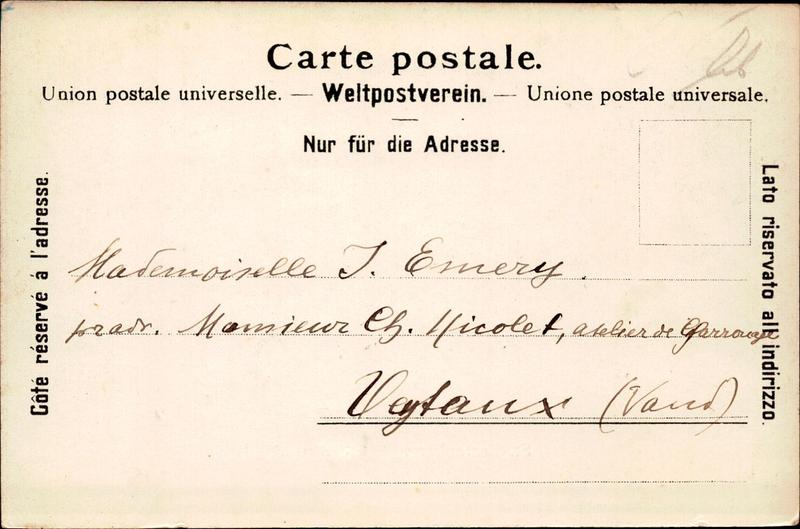 Carte postale.
Union postale universelle. — Weltpostverein. — Unione postale universale.
Nur für die Adresse.
Côté réservé à l'adresse.
Lato riservato all'indirizzo.
Mademoiselle J. Emery.
pr adr. Monsieur Ch. Nicolet, atelier de
Veytaux (Vaud)